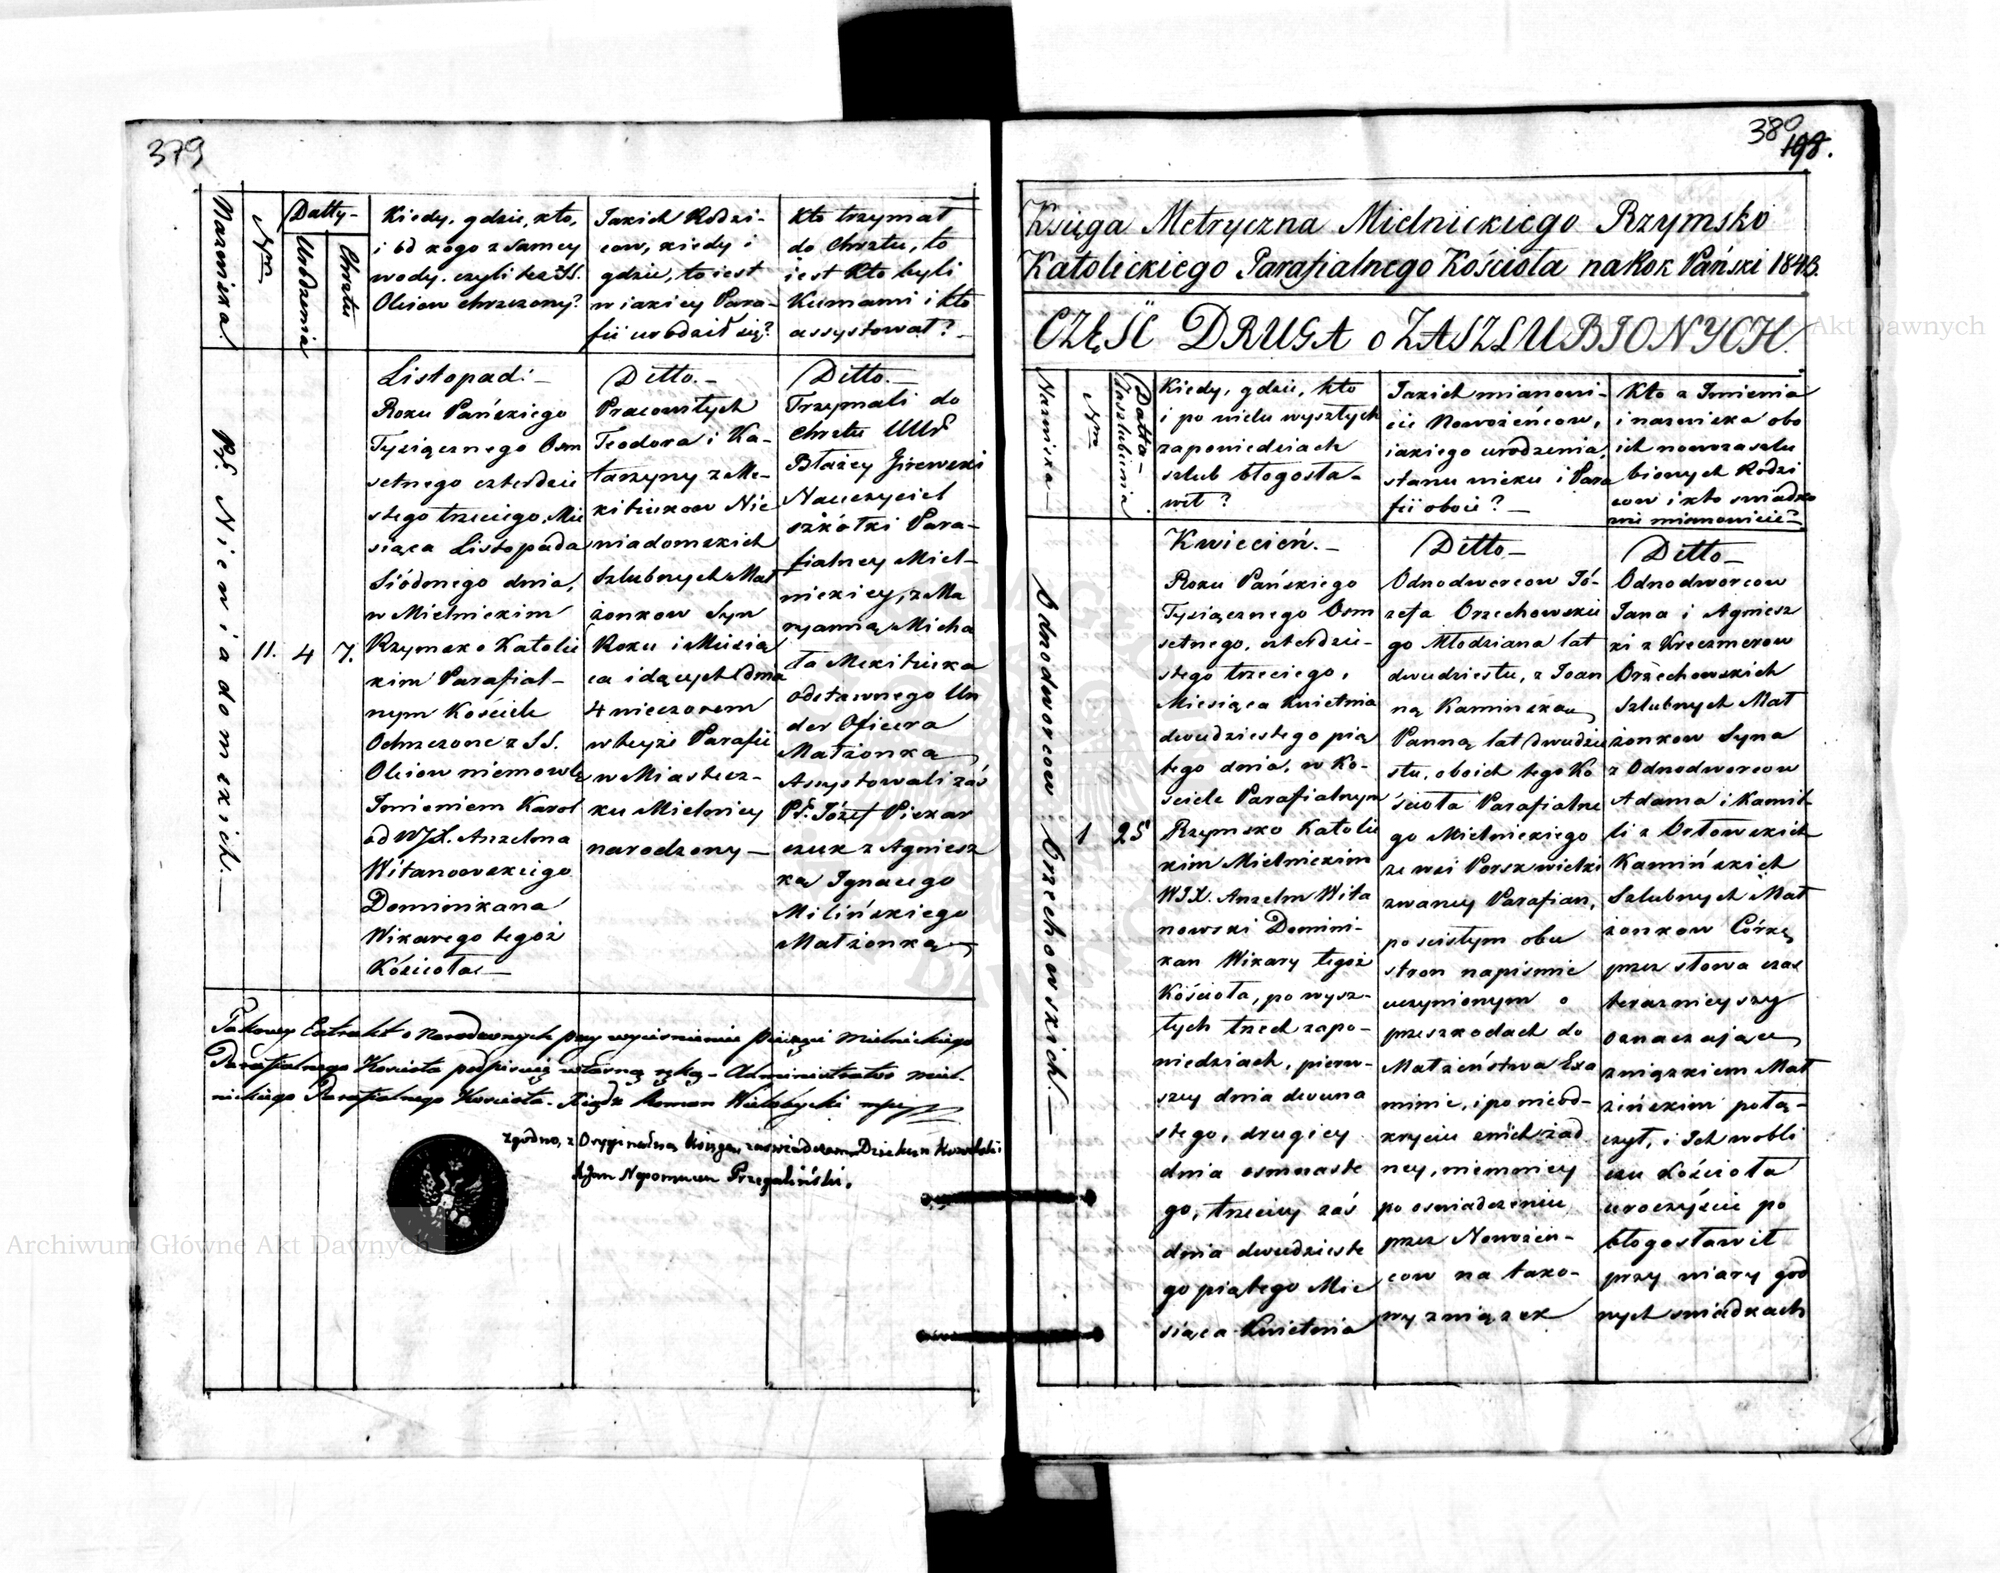 379
Nazwiska.
Nro
Datty
Urodzenia
Chrztu
Kiedy, gdzie, kto,
i od kogo z samey
wody, czyli też z SS.
Oleiow chrzczony?
Jakich Rodzi-
cow, kiedy i
gdzie, to iest
w iakiey Para-
fii urodził się?
Kto trzymał
do Chrztu, to
iest Kto byli
Kumami i kto
assystował?
Pr. Niewiadomskich.
11.
4
7.
Listopad.
Roku Pańskiego
Tysiącznego Osm
setnego czterdzie
stego trzeciego, Mie
siąca Listopada
Siódmego dnia,
w Mielnickim
Rzymsko Katolic
kim Parafial-
nym Kościele
Ochrzczone z SS.
Oleiow niemowlę
Imieniem Karol
od WJX. Anzelma
Witanowskiego
Dominikana
Wikarego tegoż
Kościoła
Detto.
Pracowitych
Teodora i Ka-
tarzyny z Me-
kitiukow Nie
wiadomskich
Szlubnych Mał
żonkow Syn
Roku i Miesią
ca idących dnia
4 wieczorem
w teyże Parafii
w Miastecz-
ku Mielnicy
narodzony
Detto.
Trzymali do
chrztu UUr
Błażey Jirewski
Nauczyciel
szkółki Para-
fialney Miel-
nickiey, z Ma
ryanną Micha
ła Mekitiuka
odstawnego Un
der Oficera
Małżonką
Asystowali zaś
Pr. Józef Piekar
czuk z Agniesz
ką Ignacego
Milińskiego
Małżonką
Takowy Extrakt o Narodzonych przy wyciśnieniu pieczęci Mielnickiego
Parafialnego Kościoła podpisuię własną ręką - Administrator Miel-
nickiego Parafialnego Kościoła. Xiądz Roman Wielobycki mpr
Zgodno, z Oryginalną Xięgą, zaświadczam Dziekan Kowelski
Adam Nepomucen Przegaliński.
380
198.
Księga Metryczna Mielnickiego Rzymsko
Katolickiego Parafialnego Kościoła na Rok Pański 1843.
CZĘŚĆ DRUGA o ZASZLUBIONYCH.
Nazwiska
Nro
Datta
Zaszlubienia
Kiedy, gdzie, kto
i po wielu wyszłych
zapowiedziach
szlub błogosła-
wił?
Jakich mianowi-
cie Nowożeńcow,
iakiego urodzenia,
stanu wieku i Para
fii oboie?
Kto z Imienia
i nazwiska obo
ich nowozaszlu
bionych Rodzi
cow i kto świadko
wie mianowicie?
Odnodworcow Orzechowskich.
1
25
Kwiecień.
Roku Pańskiego
Tysiącznego Osm
setnego, czterdzie-
stego trzeciego,
Miesiąca Kwietnia
dwudziestego pią
tego dnia, w Ko-
ściele Parafialnym
Rzymsko Katolic
kim Mielnickim
WJX. Anzelm Wita
nowski Domini-
kan Wikary tegoż
Kościoła, po wysz-
łych trzech zapo-
wiedziach, pierw-
szey dnia dwuna
stego, drugiey
dnia osmnaste
go, trzeciey zaś
dnia dwudzieste
go piątego Mie
siąca Kwietnia
Detto
Odnodworcow Jó-
zefa Orzechowskie
go Młodziana lat
dwudziestu, z Joan
ną Kamińską
Panną lat dwudzie
stu, oboich tego Ko
ścioła Parafialne
go Mielnickiego
ze wsi Porsk wielki
zwaney Parafian,
po ścisłym obu
stron napiśmie
uczynionym o
przeszkodach do
Małżeństwa Exa
minie, i po nieod-
kryciu onich żad
ney, niemniey
po oświadczeniu
przez Nowożeń-
cow na tako-
wy związek
Detto
Odnodworcow
Jana i Agniesz
ki z Kreczmerow
Orzechowskich
Szlubnych Mał
żonkow Syna
z Odnodworcow
Adama i Kamil-
li z Orłowskich
Kamińskich
Szlubnych Mał
żonkow Córką
przez słowa czas
teraznieyszy
oznaczaiące
związkiem Mał
żeńskim połą-
czył, i Ich wobli
czu Kościoła
uroczyście po
błogosławił
przy wiary god
nych świadkach
Archiwum Główne Akt Dawnych
Archiwum Główne Akt Dawnych